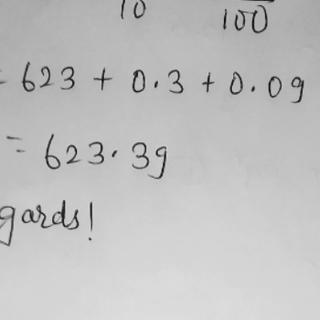 10 100
= 623 + 0.3 + 0.09
= 623.39
gards!